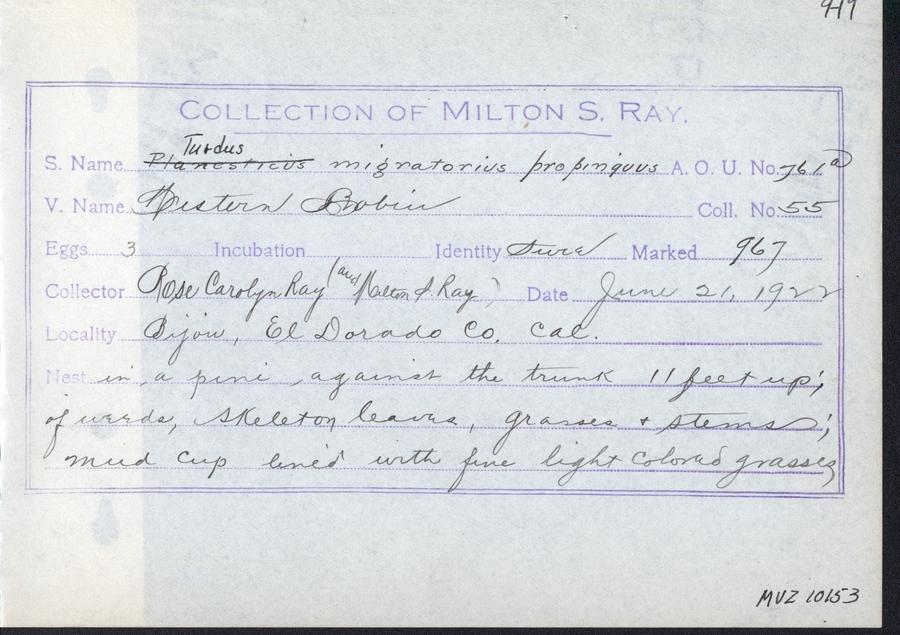 919
COLLECTION OF MILTON S. RAY.
Turdus
S. Name Planesticus migratorius propinquus A. O. U. No. 761a
V. Name Western Robin Coll. No. 55
Eggs 3 Incubation Identity sure Marked 967
Collector Rose Carolyn Ray (and Milton S. Ray) Date June 21, 1922
Locality Bijou, El Dorado Co. Cal.
Nest in a pine, against the trunk 11 feet up;
of weeds, skeleton leaves, grasses + stems;
mud cup lined with fine light colored grasses
MVZ 10153